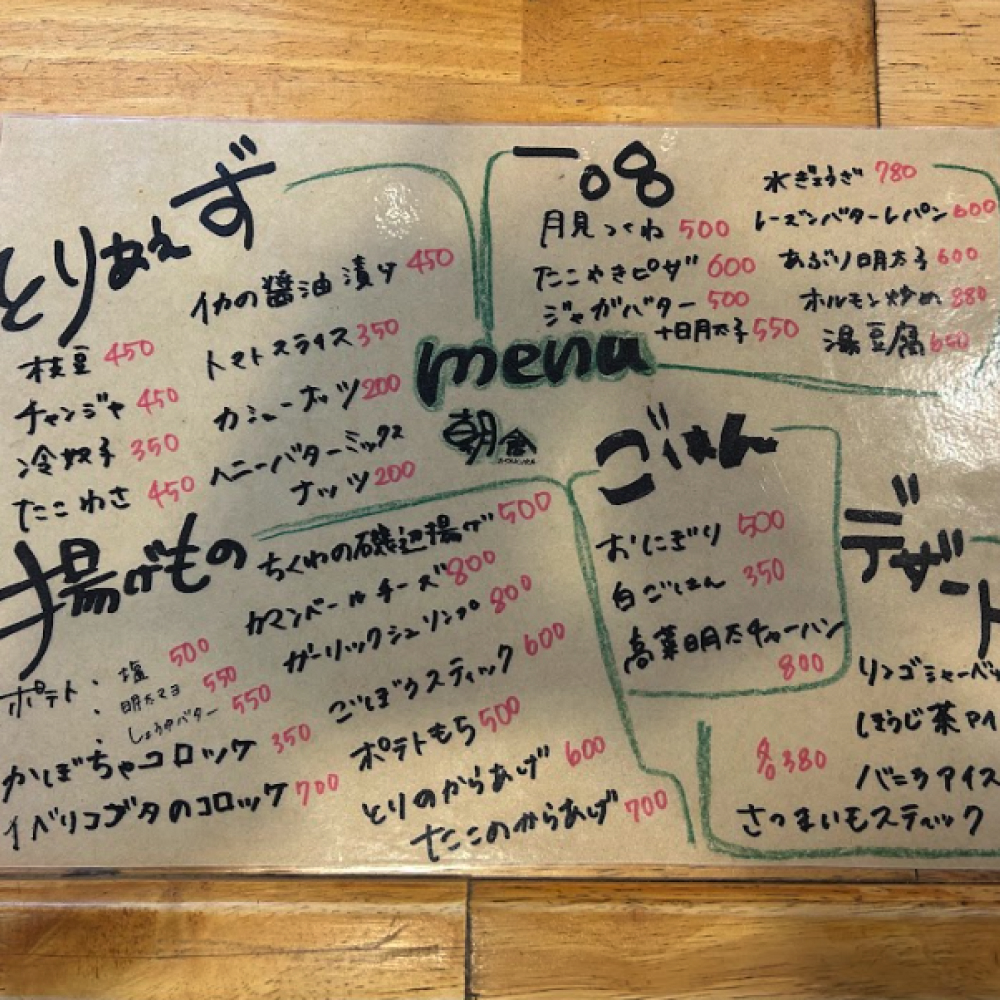 とりあえず
イカの醤油漬け 450
枝豆 450
トマトスライス 350
チャンジャ 450
カシューナッツ 200
冷奴 350
ハニーバターミックス
ナッツ 200
たこわさ 450
一品
月見つくね 500
たこやきピザ 600
ジャガバター 500
+明太子 550
水ぎょうざ 780
レーズンバターレパン 600
あぶり明太子 600
ホルモン炒め 880
湯豆腐 650
menu
朝倉
揚げもの
ちくわの磯辺揚げ 500
カマンベールチーズ 800
ガーリックシュリンプ 800
ごぼうスティック 600
ポテトもち 500
とりのからあげ 600
たこのからあげ 700
ポテト:塩 500
:明太マヨ 550
:しょうゆバター 550
かぼちゃコロッケ 350
イベリコブタのコロッケ 700
ごはん
おにぎり 500
白ごはん 350
高菜明太チャーハン
800
デザート
リンゴシャーベッ
ほうじ茶アイ
バニラアイス
さつまいもスティック
各380